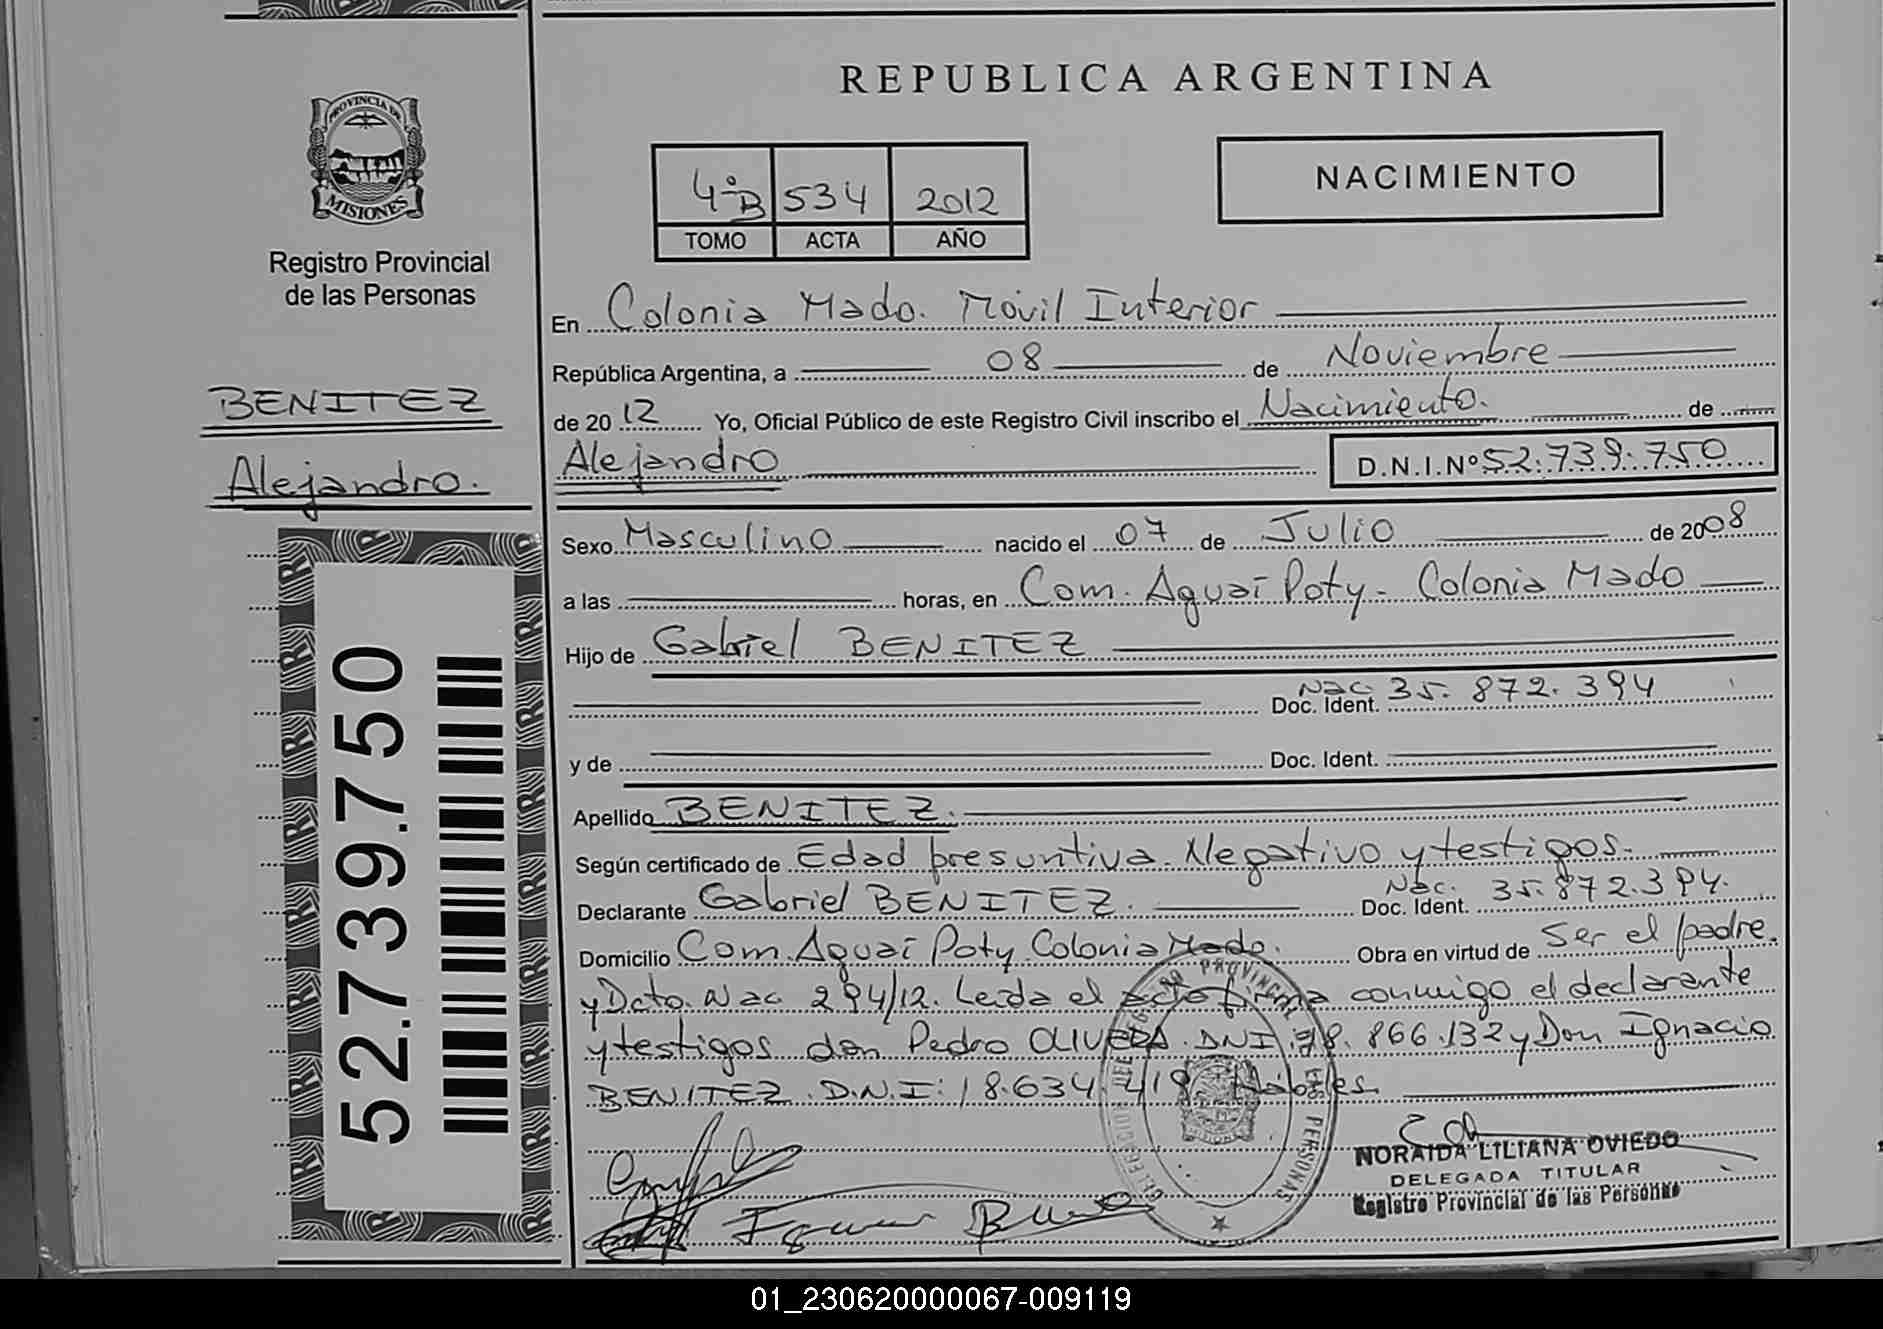 REPUBLICA ARGENTINA
PROVINCIA DE
MISIONES
Registro Provincial
de las Personas
4°B 534 2012
TOMO ACTA AÑO
NACIMIENTO
BENITEZ
Alejandro.
52.739.750
En Colonia Mado. Móvil Interior
República Argentina, a 08 de Noviembre
de 2012 Yo, Oficial Público de este Registro Civil inscribo el Nacimiento. de
Alejandro D.N.I.Nº 52.739.750
Sexo Masculino nacido el 07 de Julio de 2008
a las horas, en Com. Aguaí Poty - Colonia Mado
Hijo de Gabriel BENITEZ
Doc. Ident. Nac. 35.872.394
y de Doc. Ident.
Apellido BENITEZ.
Según certificado de Edad presuntiva. Negativo y testigos.
Declarante Gabriel BENITEZ. Doc. Ident. Nac. 35.872.394.
Domicilio Com. Aguaí Poty Colonia Mado. Obra en virtud de Ser el padre.
y Dcto. Nac 294/12. Leída el acto firma conmigo el declarante
y testigos don Pedro OLIVERA. DNI. 866.132 y Don Ignacio
BENITEZ. D.N.I: 18.634.419 Hábiles.
PROVINCIAL DE LAS PERSONAS
NORAIDA LILIANA OVIEDO
DELEGADA TITULAR
Registro Provincial de las Personas
01_230620000067-009119